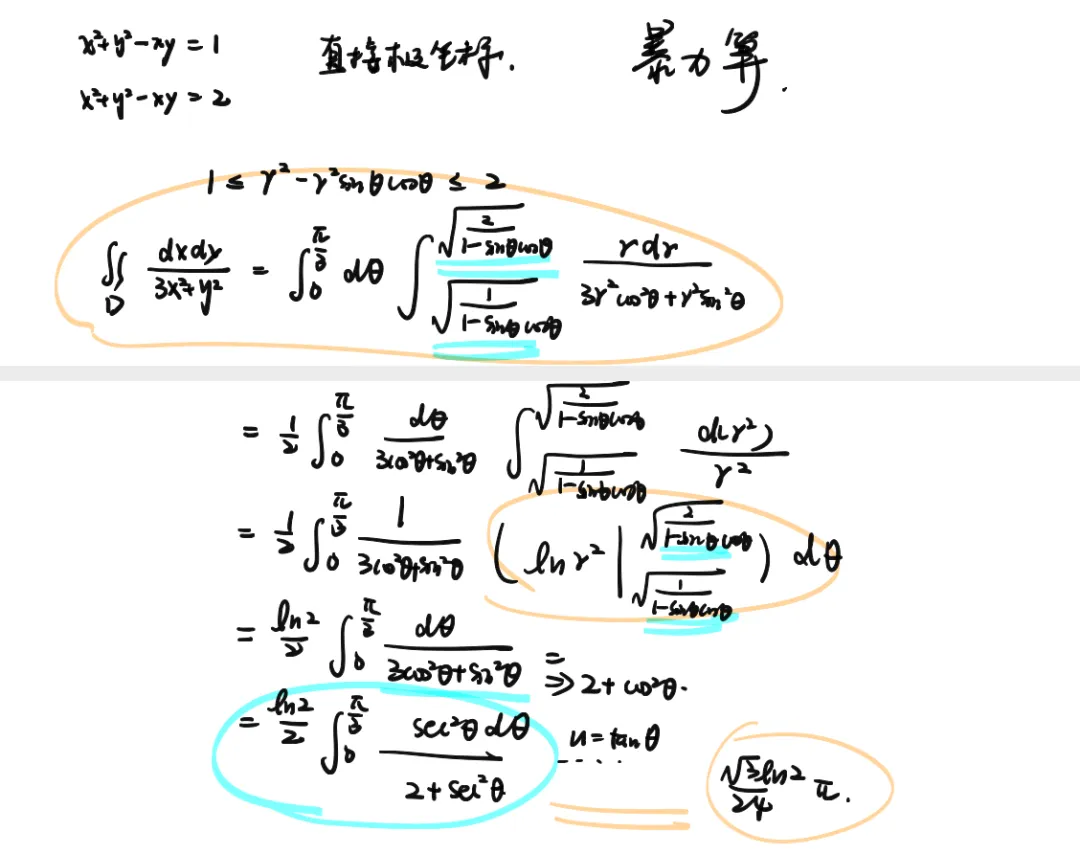 x²+y²-xy=1 直接极坐标. 暴力算.
x²+y²-xy=2
1 ≤ r²-r²sinθcosθ ≤ 2
∬_D dxdy/(3x²+y²) = ∫_0^{π/3} dθ ∫_{√(1/(1-sinθcosθ))}^{√(2/(1-sinθcosθ))} rdr/(3r²cos²θ+r²sin²θ)
= 1/2 ∫_0^{π/3} dθ/(3cos²θ+sin²θ) ∫_{√(1/(1-sinθcosθ))}^{√(2/(1-sinθcosθ))} d(r²)/r²
= 1/2 ∫_0^{π/3} 1/(3cos²θ+sin²θ) (ln r² |_{√(1/(1-sinθcosθ))}^{√(2/(1-sinθcosθ))}) dθ
= ln2/2 ∫_0^{π/3} dθ/(3cos²θ+sin²θ) => 2+cos²θ.
= ln2/2 ∫_0^{π/3} sec²θdθ/(2+sec²θ) u=tanθ ...... √3ln2/24 π.